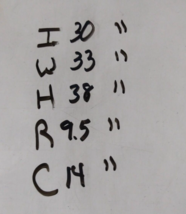 I 30 "
W 33 "
H 38 "
R 9.5 "
C 14 "